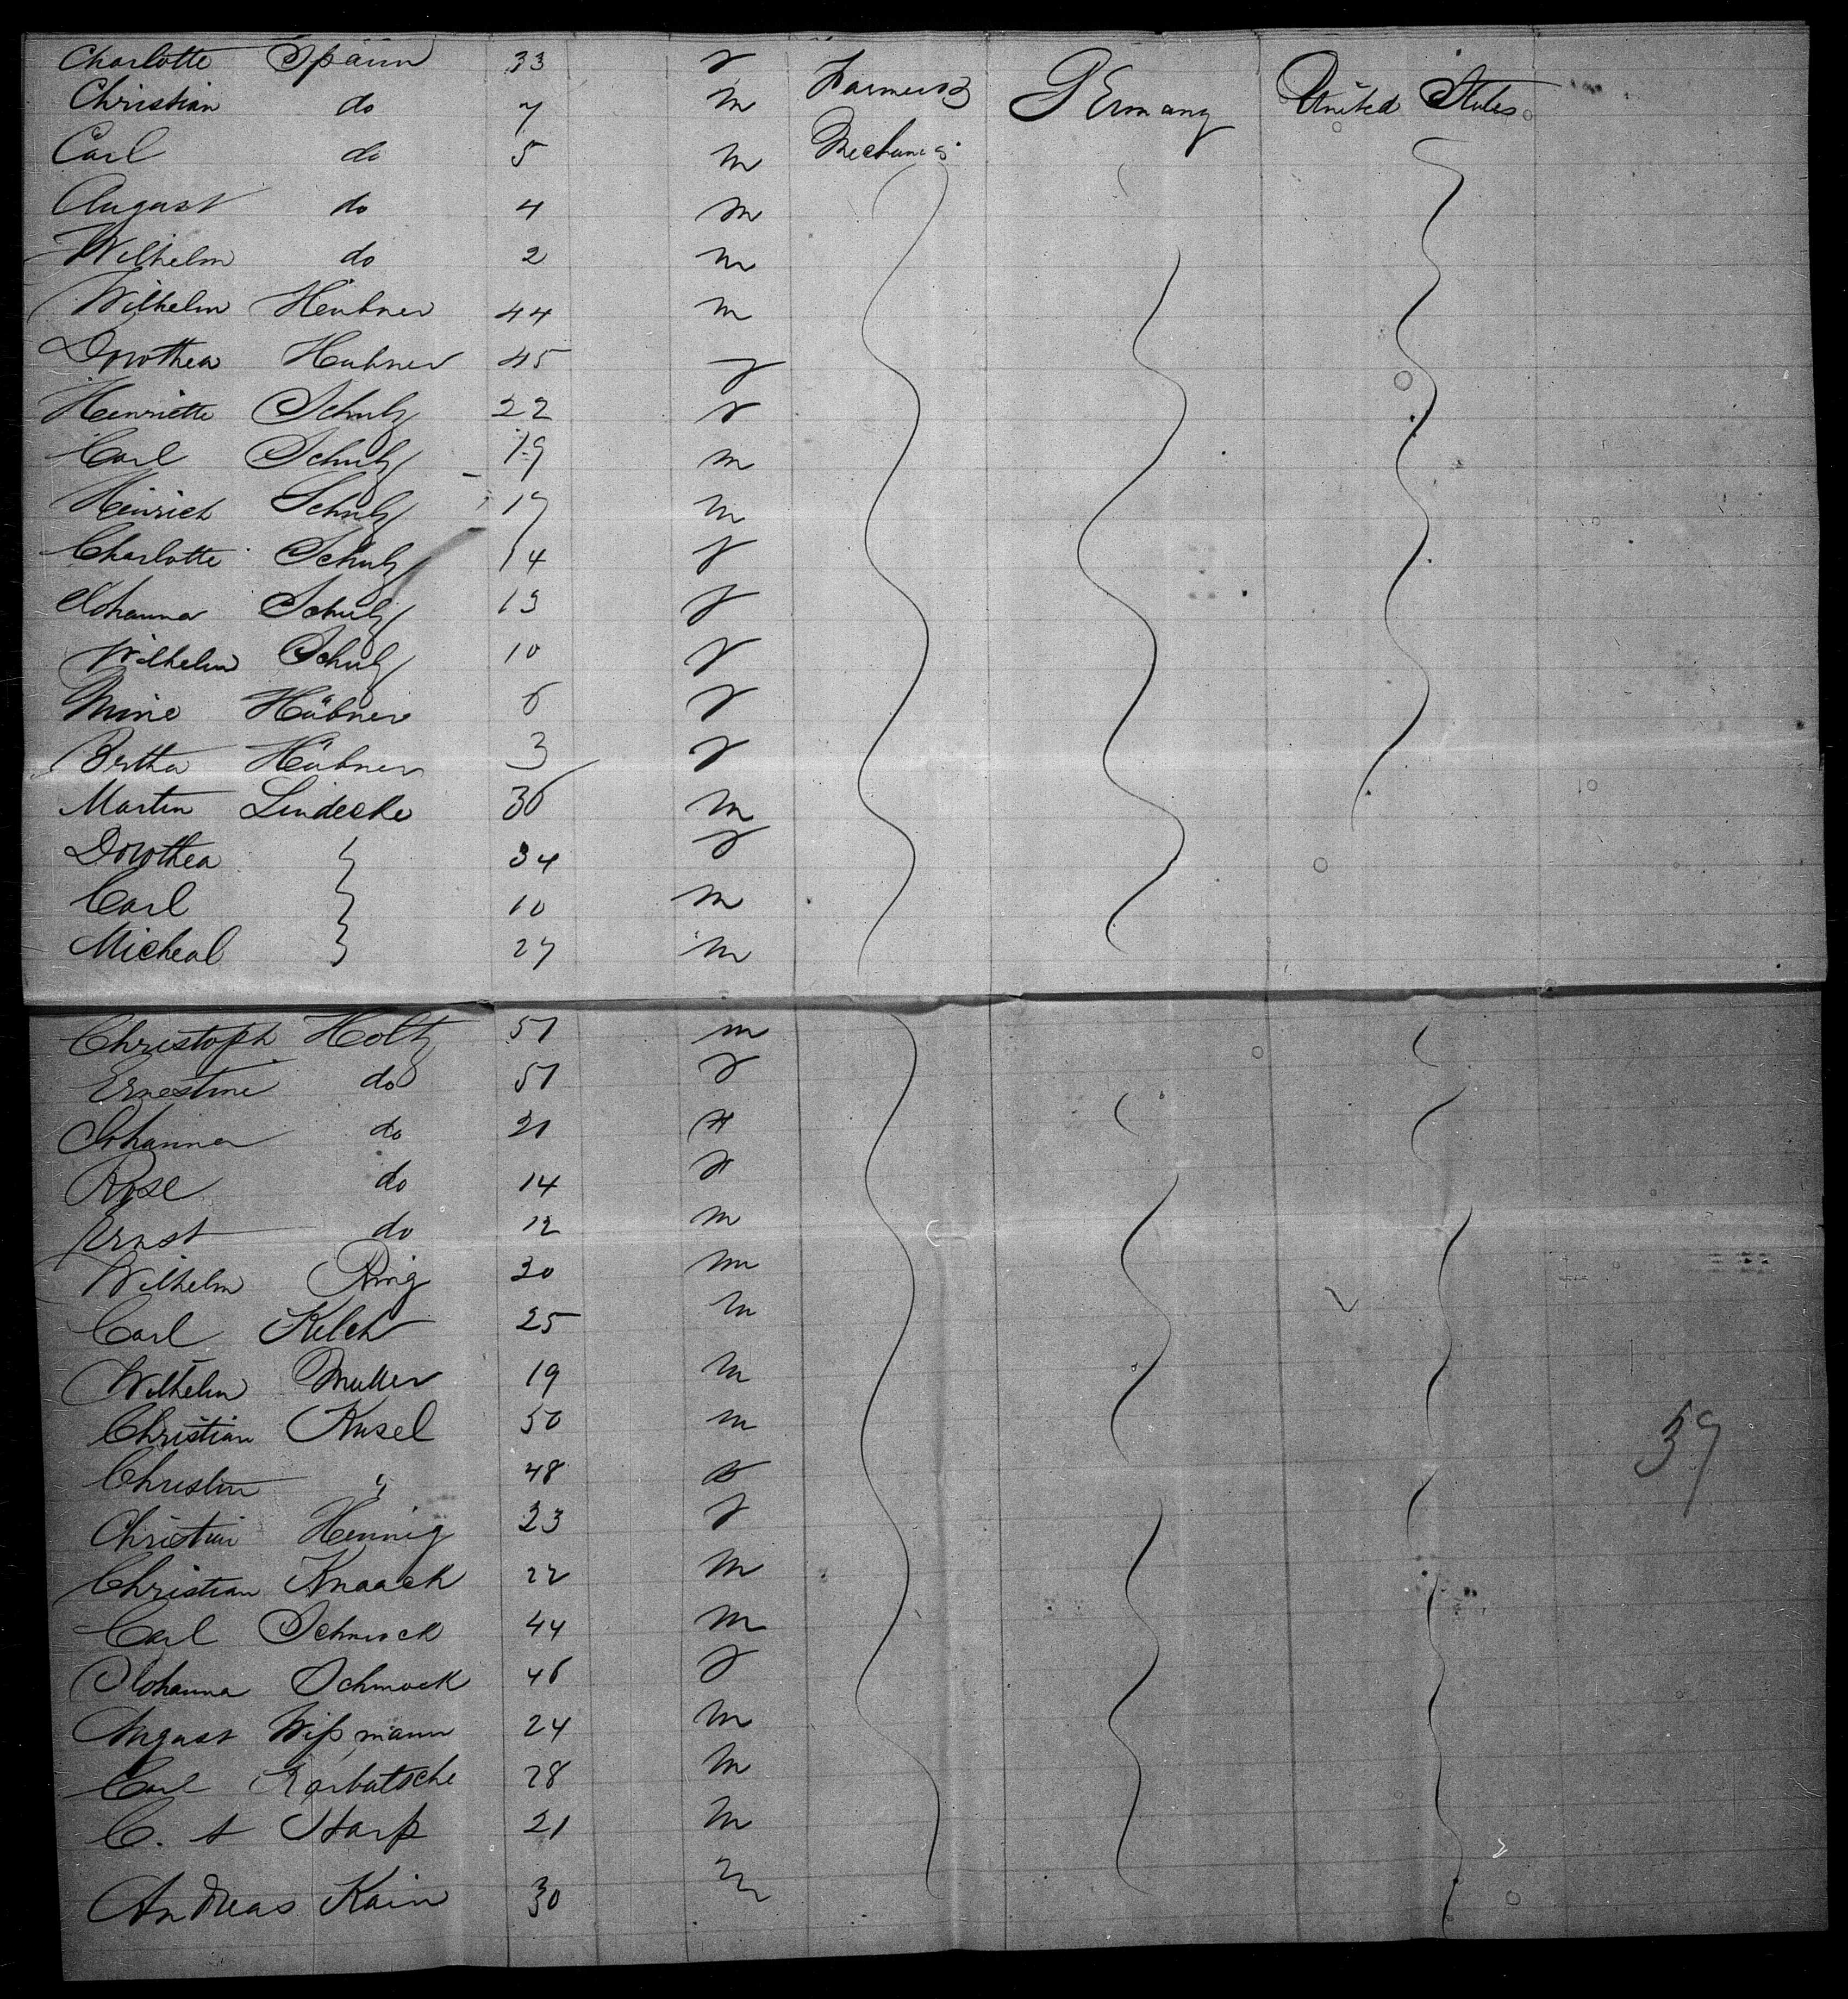 Charlotte Spänn 33 f Farmers & Germany United States
Christian do 7 m
Carl do 5 m Mechanics
August do 4 m
Wilhelm do 2 m
Wilhelm Heubner 44 m
Dorothea Hubner 45 f
Henriette Schulz 22 f
Carl Schulz 19 m
Heinrich Schulz 17 m
Charlotte Schulz 14 f
Johanna Schulz 13 f
Wilhelm Schulz 10 f
Mine Hübner 6 f
Bertha Hübner 3 f
Martin Lindecke 36 m
Dorothea 34 f
Carl 10 m
Micheal 27 m
Christoph Holtz 51 m
Ernestine do 51 f
Johanna do 21 f
Rose do 14 f
Ernst do 12 m
Wilhelm Ring 30 m
Carl Kelch 25 m
Wilhelm Muller 19 m
Christian Kusel 50 m
Christin " 48 f
Christin Hennig 23 f
Christian Knaack 22 m
Carl Schmock 44 m
Johanna Schmock 46 f
August Wißmann 24 m
Carl Karbatsche 28 m
C. A Harp 21 m
Andreas Kain 30 m
39